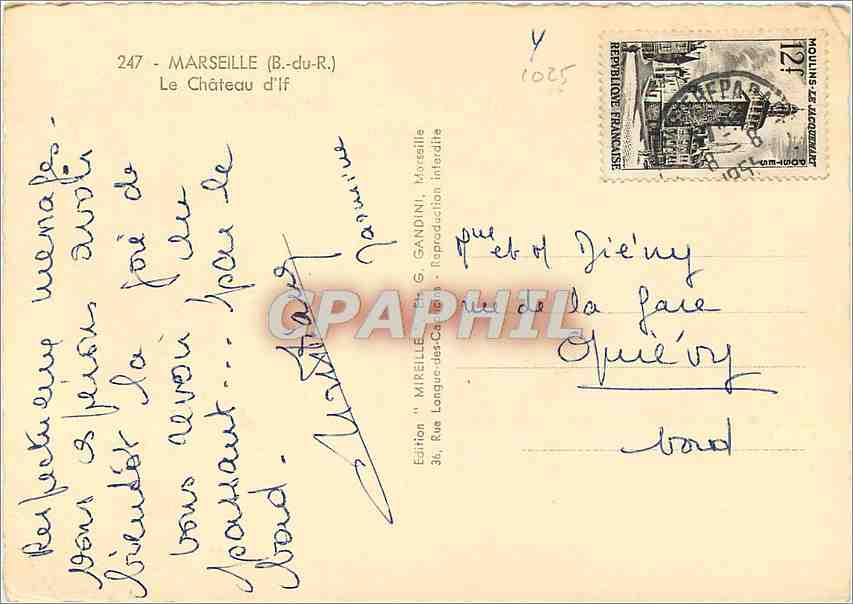 247 - MARSEILLE (B.-du-R.)
Le Château d'If
Y
1025
MOULINS - LE JACQUEMART
12f
POSTES
REPUBLIQUE FRANÇAISE
Respectueux messages.
Nous espérons avoir
bientôt la joie de
vous revoir en
passant... par le
Nord.
Edition " MIREILLE " Et. G. GANDINI, Marseille
36, Rue Longue-des-Capucins - Reproduction interdite
CPAPHIL
Mme et M Diény
rue de la gare
Quiévy
Nord